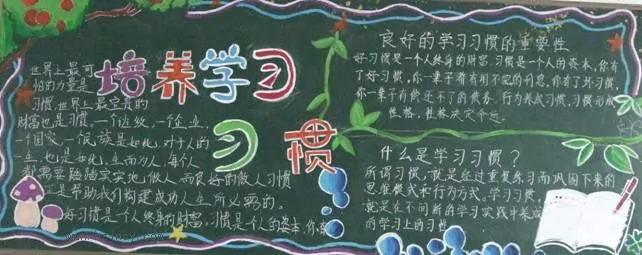 培养学习
习惯
世界上最可
怕的力量是
习惯,世界上最宝贵的
财富也是习惯。一个班级,一个企业,
一个国家,一个民族是如此,对于人的
一生,也是如此,生而为人,每个人
都需要踏踏实实地做人,而良好的做人习惯
正是帮助我们构建成功人生所必需的。
好习惯是一个人终身的财富,习惯是个人的资本,你
良好的学习习惯的重要性
好习惯是一个人终身的财富,习惯是一个人的资本,你有
了好习惯,你一辈子都有用不完的利息,你有了坏习惯,
你一辈子有偿还不了的债务,行为养成习惯,习惯形成
性格,性格决定命运。
什么是学习习惯?
所谓习惯,就是经过重复练习而巩固下来的
思维模式和行为方式。学习习惯,
就是在不间断的学习实践中养成
的学习上的习性